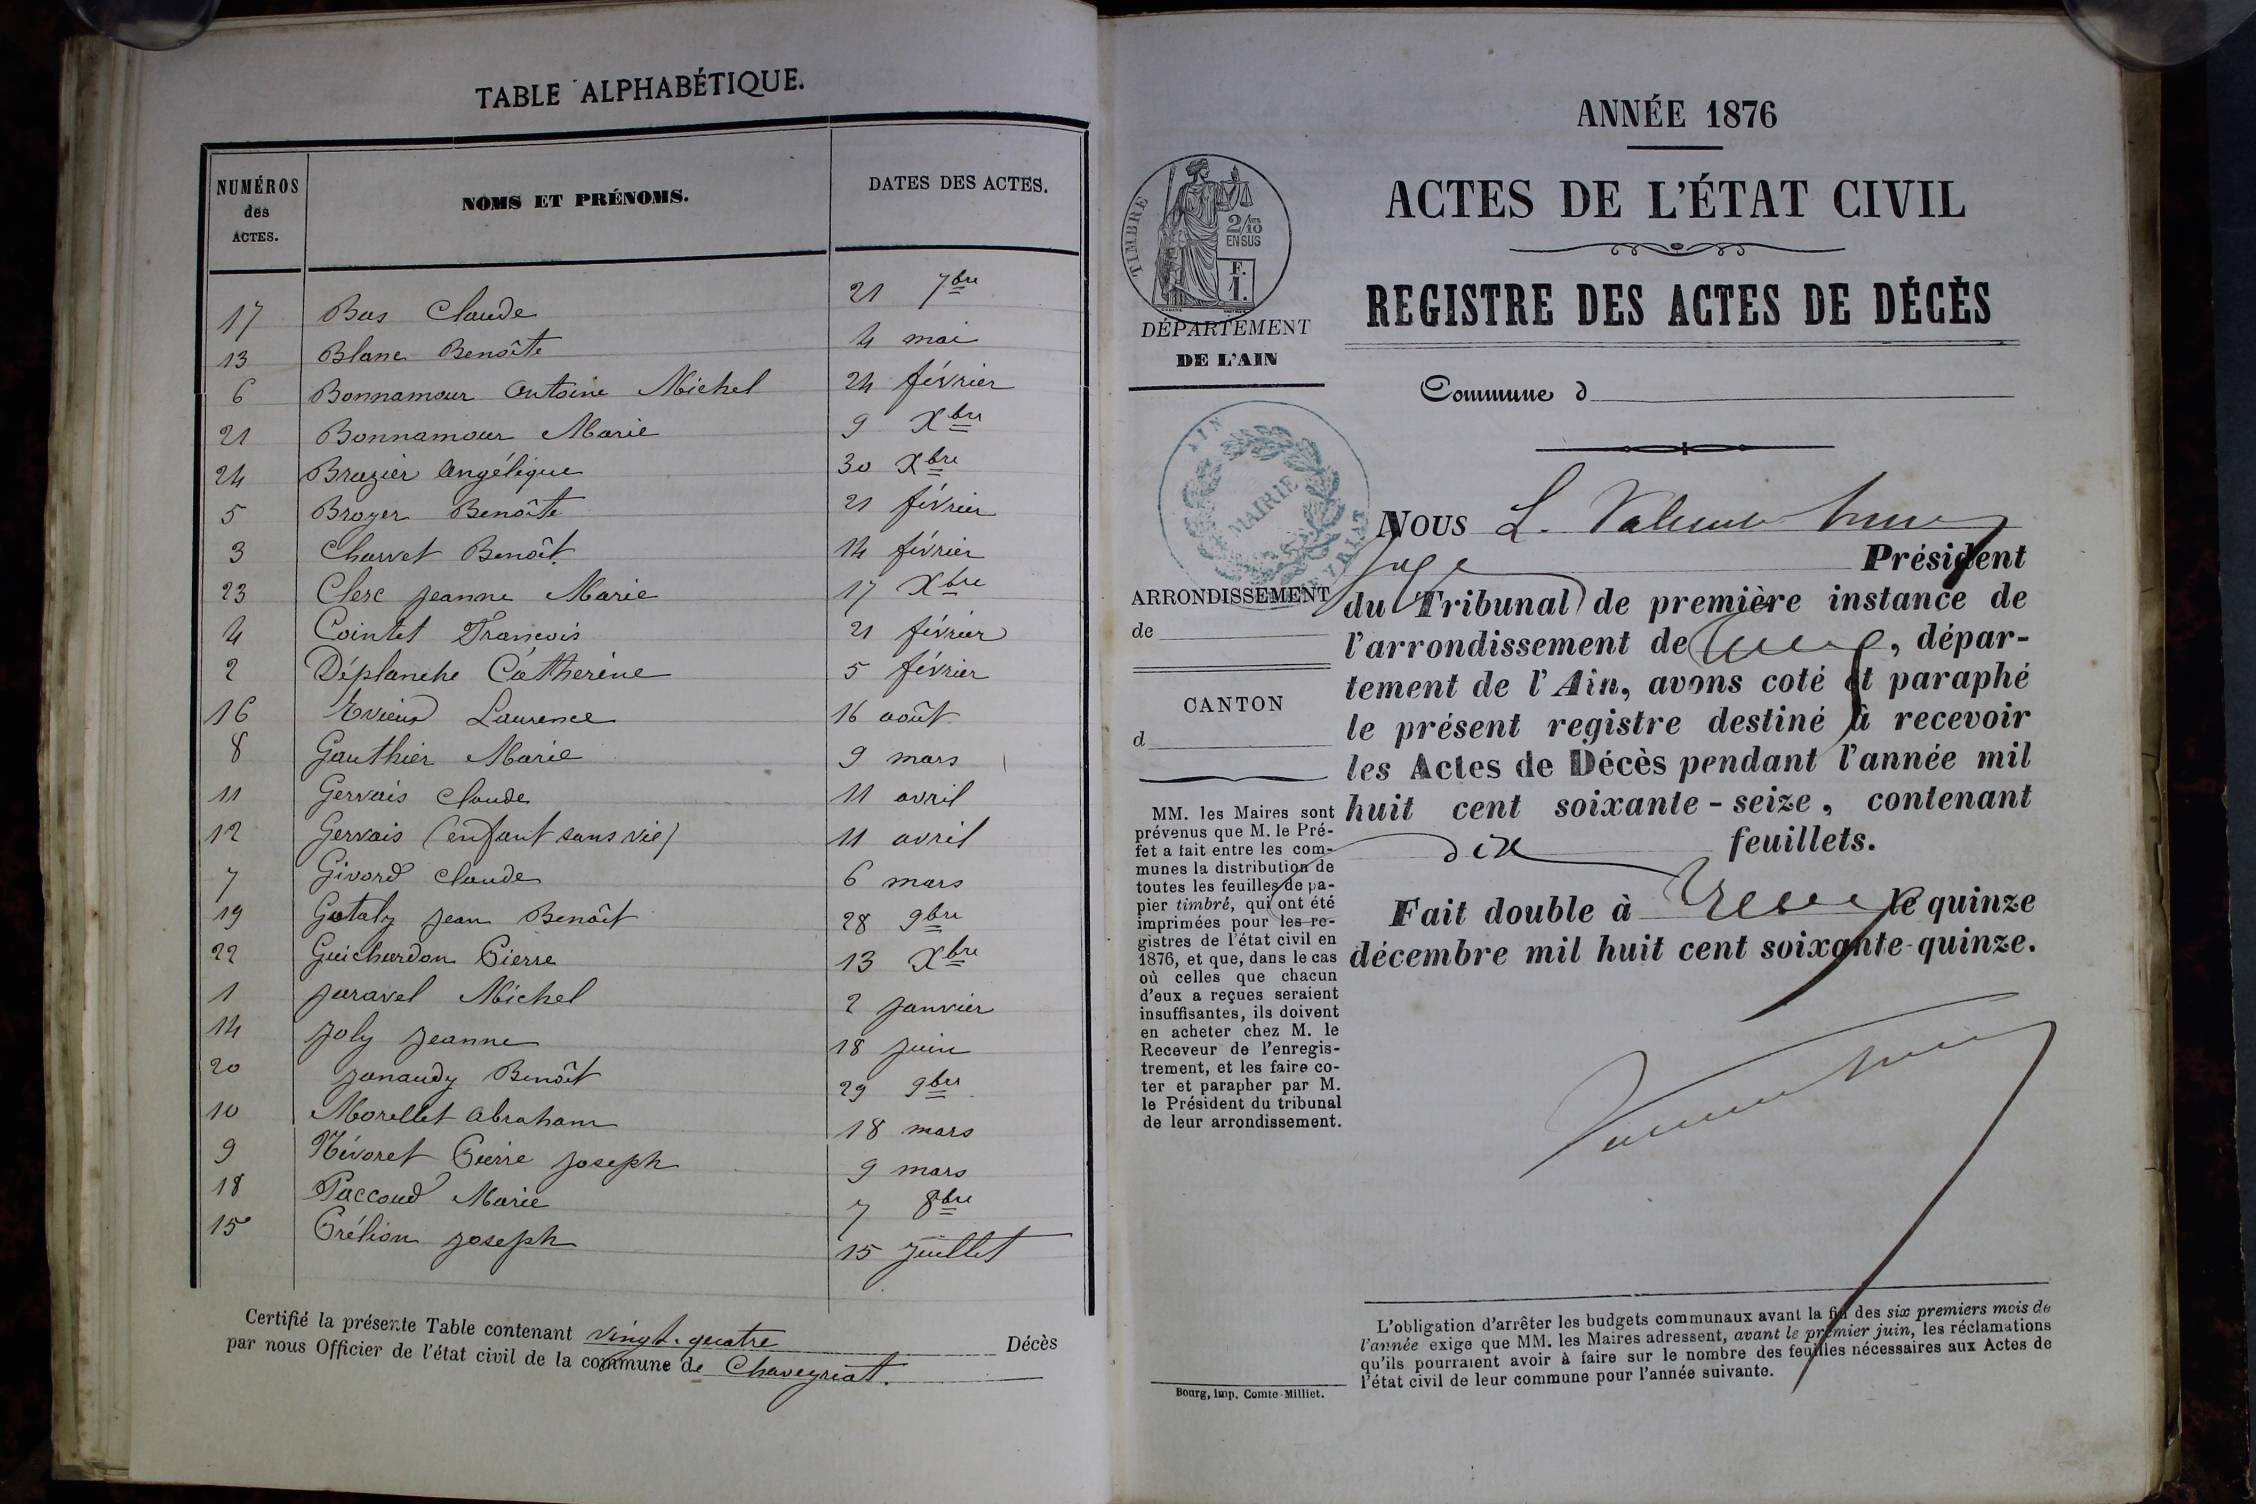 TABLE ALPHABÉTIQUE.
NUMÉROS des ACTES. NOMS ET PRÉNOMS. DATES DES ACTES.
17 Bas Claude 21 7bre
13 Blanc Benoîte 4 mai
6 Bonnamour Antoine Michel 24 février
21 Bonnamour Marie 9 Xbre
24 Brazier Angélique 30 Xbre
5 Broyer Benoîte 21 février
3 Charvet Benoît 14 février
23 Clerc Jeanne Marie 17 Xbre
4 Cointet François 21 février
2 Déplanche Catherine 5 février
16 Evieux Laurence 16 août
8 Gauthier Marie 9 mars
11 Gervais Claude 11 avril
12 Gervais (enfant sans vie) 11 avril
7 Givord Claude 6 mars
19 Gotaly Jean Benoît 28 9bre
22 Guichardon Pierre 13 Xbre
1 Jaravel Michel 2 janvier
14 Joly Jeanne 18 juin
20 Janaudy Benoît 29 9bre
10 Morellet Abraham 18 mars
9 Névoret Pierre Joseph 9 mars
18 Paccoud Marie 7 8bre
15 Prélion Joseph 15 juillet
Certifié la présente Table contenant vingt-quatre Décès
par nous Officier de l'état civil de la commune de Chaveyriat.
ANNÉE 1876
ACTES DE L'ÉTAT CIVIL
REGISTRE DES ACTES DE DÉCÈS
TIMBRE
2/10
EN SUS
F.
1.
DÉPARTEMENT
DE L'AIN
Commune d
AIN
MAIRIE
ARRONDISSEMENT
de
CANTON
d
MM. les Maires sont
prévenus que M. le Pré-
fet a fait entre les com-
munes la distribution de
toutes les feuilles de pa-
pier timbré, qui ont été
imprimées pour les re-
gistres de l'état civil en
1876, et que, dans le cas
où celles que chacun
d'eux a reçues seraient
insuffisantes, ils doivent
en acheter chez M. le
Receveur de l'enregis-
trement, et les faire co-
ter et parapher par M.
le Président du tribunal
de leur arrondissement.
Bourg, imp. Comte-Milliet.
NOUS L.
Juge Président
du Tribunal de première instance de
l'arrondissement de , dépar-
tement de l'Ain, avons coté et paraphé
le présent registre destiné à recevoir
les Actes de Décès pendant l'année mil
huit cent soixante-seize, contenant
dix feuillets.
Fait double à le quinze
décembre mil huit cent soixante-quinze.
L'obligation d'arrêter les budgets communaux avant la fin des six premiers mois de
l'année exige que MM. les Maires adressent, avant le premier juin, les réclamations
qu'ils pourraient avoir à faire sur le nombre des feuilles nécessaires aux Actes de
l'état civil de leur commune pour l'année suivante.